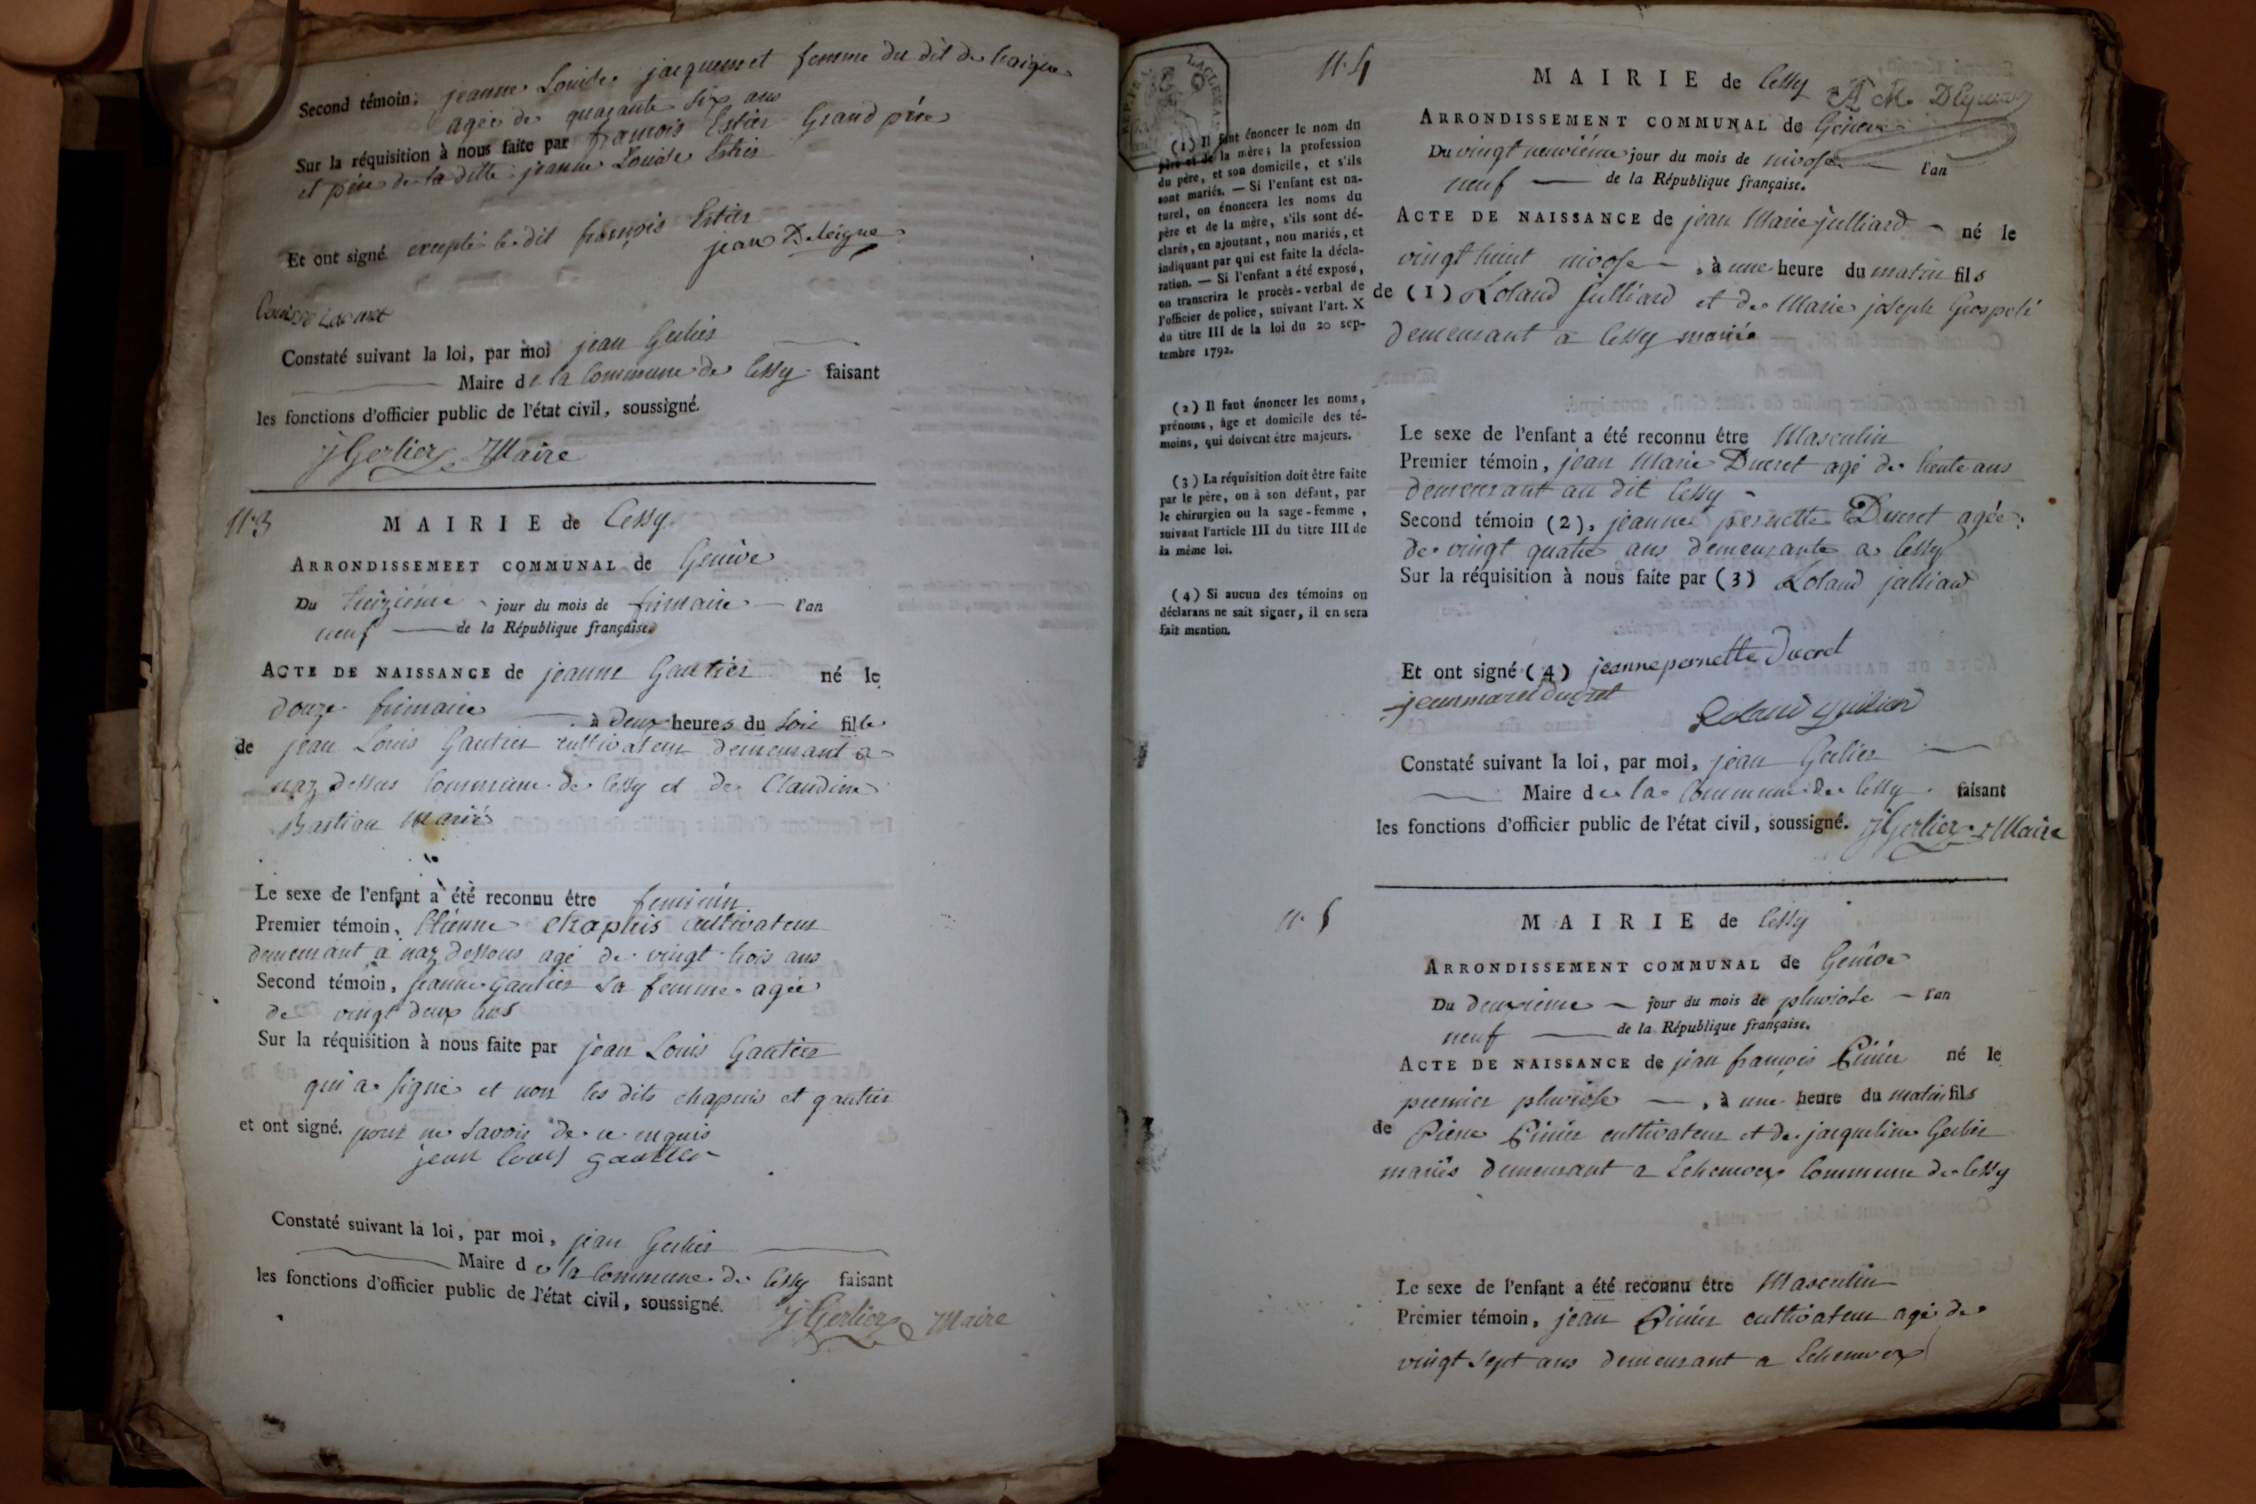 Second témoin, jeanne Louise jacquemet femme du dit de
agée de quarante six ans
Sur la réquisition à nous faite par françois Estier Grand père
et père de la ditte jeanne Louise Estier
Et ont signé excepté le dit françois Estier
jean Deleigue
Constaté suivant la loi, par moi jean Gerlier
Maire de la Commune de Cessy faisant
les fonctions d'officier public de l'état civil, soussigné.
J Gerlier Maire
N.3
MAIRIE de Cessy
ARRONDISSEMEET COMMUNAL de Genève
Du treizième jour du mois de frimaire l'an
neuf de la République française.
ACTE DE NAISSANCE de jeanne Gautier né le
douze frimaire à deux heures du soir fille
de jean Louis Gautier cultivateur demeurant a
naz dessus Commune de Cessy et de Claudine
Bastian Mariés
Le sexe de l'enfant a été reconnu être feminin
Premier témoin, Etienne Chapuis cultivateur
demeurant a naz dessous agé de vingt trois ans
Second témoin, jeanne Gautier sa femme agée
de vingt deux ans
Sur la réquisition à nous faite par jean Louis Gautier
qui a signé et non les dits chapuis et gautier
et ont signé. pour ne savoir de ce enquis
jean louis gautier
Constaté suivant la loi, par moi, jean Gerlier
Maire de la Commune de Cessy faisant
les fonctions d'officier public de l'état civil, soussigné.
J Gerlier Maire
N.4
MAIRIE de Cessy
ARRONDISSEMENT COMMUNAL de Genève
Du vingt neuvième jour du mois de nivose l'an
neuf de la République française.
ACTE DE NAISSANCE de jean Marie julliard né le
vingt huit nivose, à une heure du matin fils
de (1) Roland julliard et de Marie joseph Grospeli
demeurant a Cessy mariés
Le sexe de l'enfant a été reconnu être Masculin
Premier témoin, jean Marie Ducret agé de trente ans
demeurant au dit Cessy
Second témoin (2), jeanne pernette Ducret agée
de vingt quatre ans demeurante a Cessy
Sur la réquisition à nous faite par (3) Roland julliard
Et ont signé (4) jeanne pernette ducret
jean marei ducret
Roland
Constaté suivant la loi, par moi, jean Gerlier
Maire de la Commune de Cessy faisant
les fonctions d'officier public de l'état civil, soussigné. J Gerlier Maire
(1) Il faut énoncer le nom du
père et de la mère; la profession
du père, et son domicile, et s'ils
sont mariés. — Si l'enfant est na-
turel, on énoncera les noms du
père et de la mère, s'ils sont dé-
clarés, en ajoutant, non mariés, et
indiquant par qui est faite la décla-
ration. — Si l'enfant a été exposé,
on transcrira le procès-verbal de
l'officier de police, suivant l'art. X
du titre III de la loi du 20 sep-
tembre 1792.
(2) Il faut énoncer les noms,
prénoms, âge et domicile des té-
moins, qui doivent être majeurs.
(3) La réquisition doit être faite
par le père, on à son défaut, par
le chirurgien ou la sage-femme,
suivant l'article III du titre III de
la même loi.
(4) Si aucun des témoins ou
déclarans ne sait signer, il en sera
fait mention.
N. 5
MAIRIE de Cessy
ARRONDISSEMENT COMMUNAL de Genève
Du deuxième jour du mois de pluviose l'an
neuf de la République française.
ACTE DE NAISSANCE de jean françois né le
premier pluviose, à une heure du matin fils
de Pierre cultivateur et de jacqueline Gerlier
mariés demeurant a Echenevex Commune de Cessy
Le sexe de l'enfant a été reconnu être Masculin
Premier témoin, jean cultivateur agé de
vingt sept ans demeurant a Echenevex